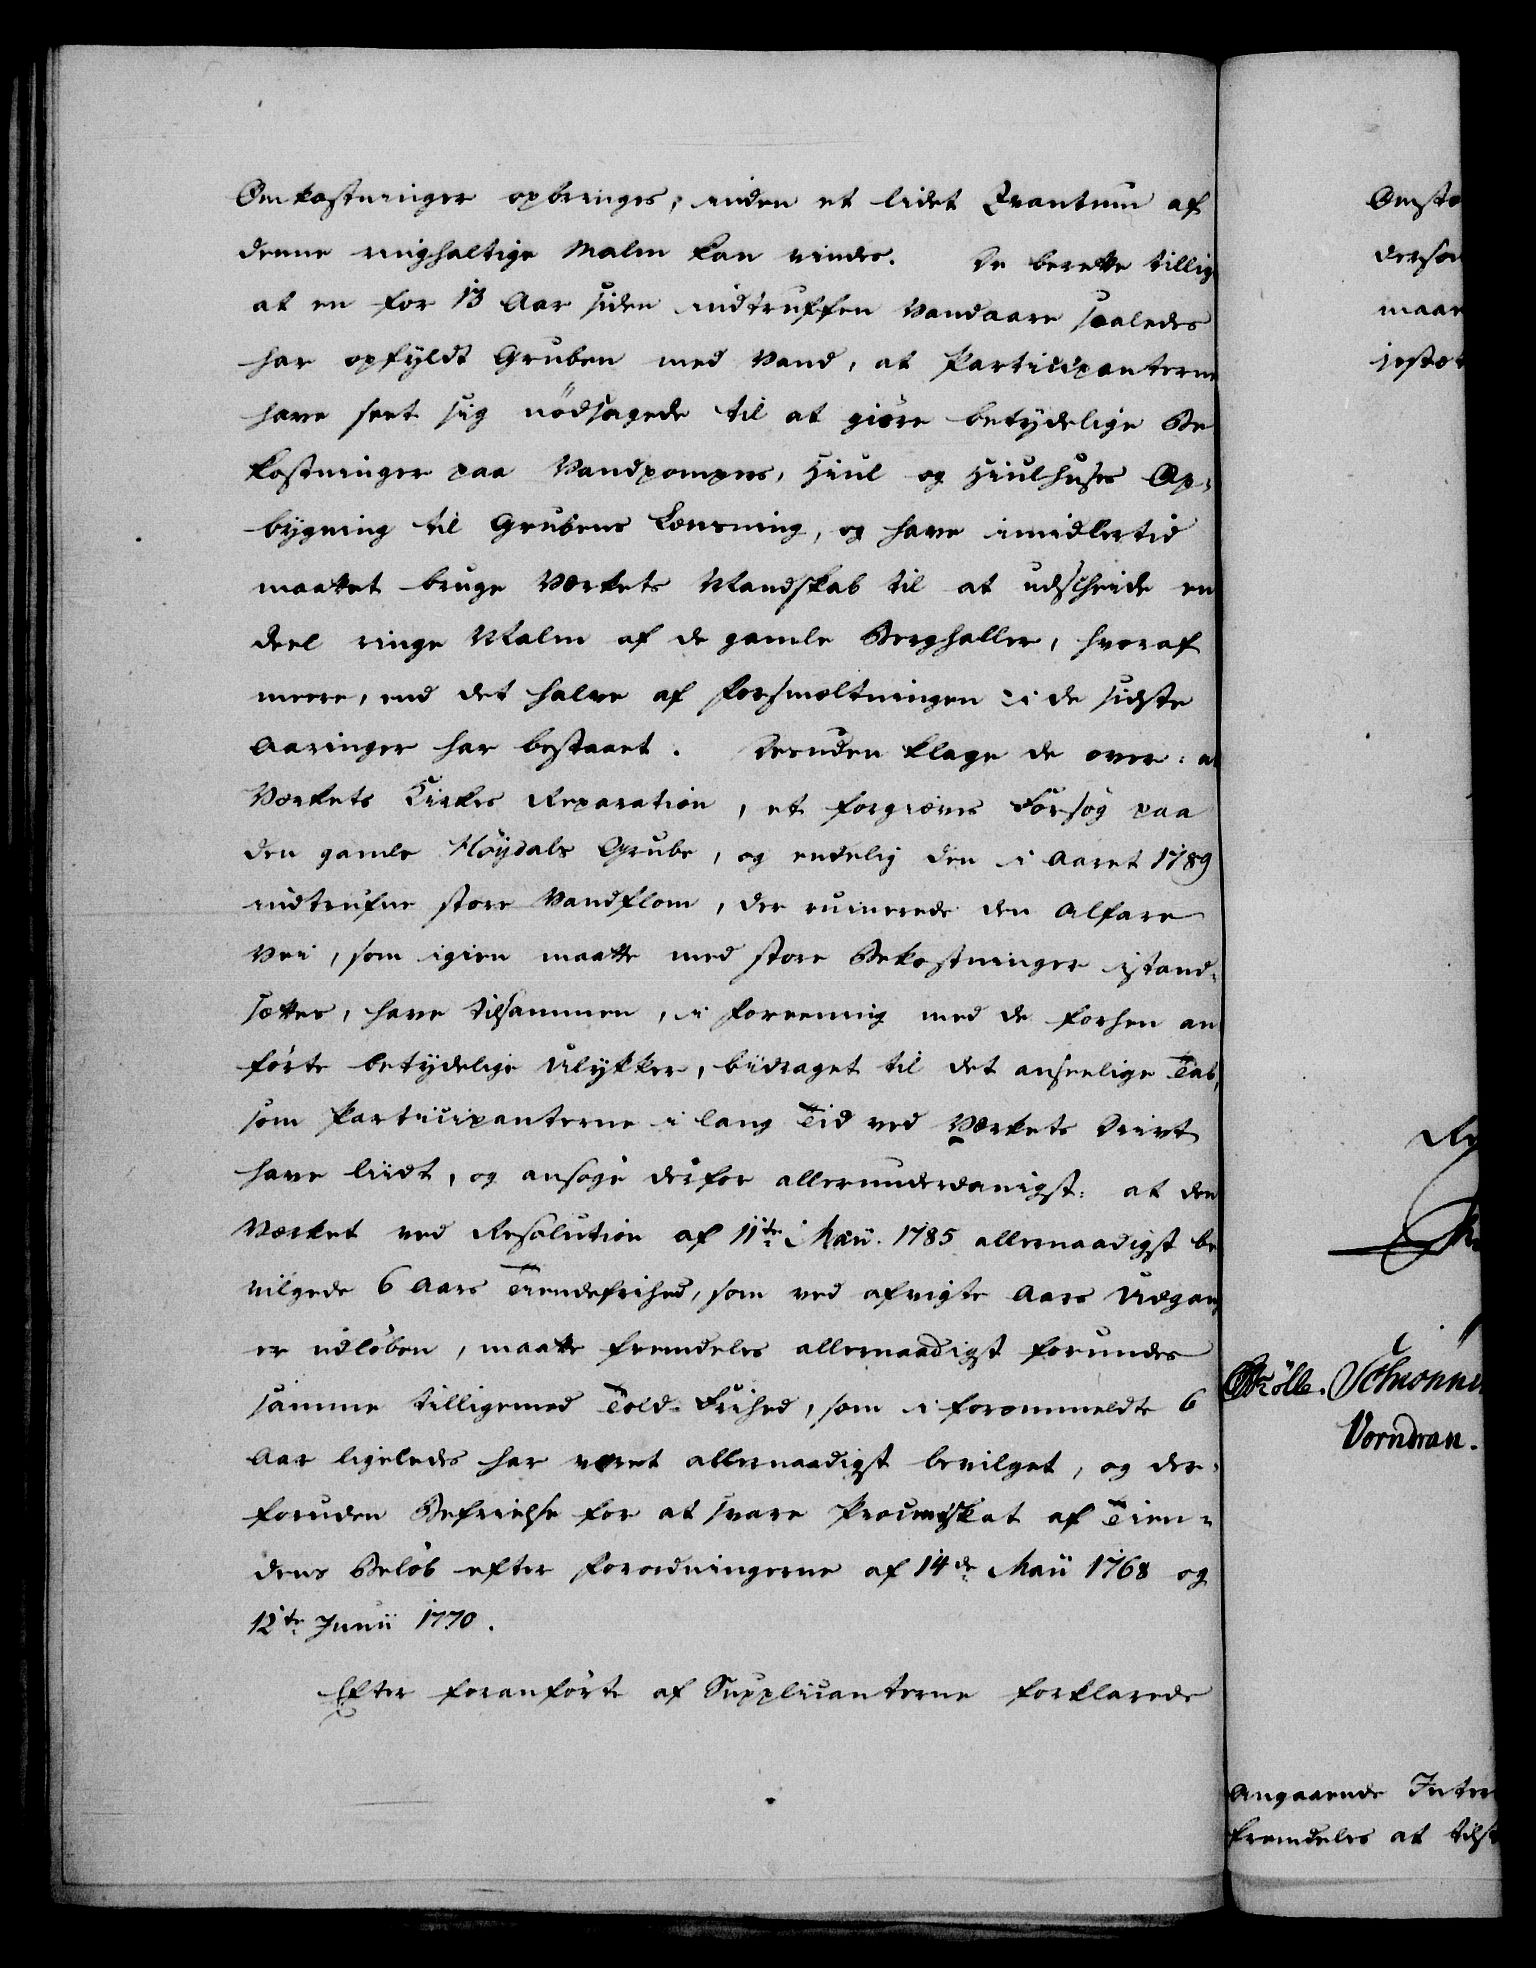 Omkostninger opbringes, inden et lidet Qvantum af
denne ringhaltige Malm kan vindes. De berette tillig
at en for 13 Aar siden indtruffen Vandaare saaledes
har opfyldt Gruben med Vand, at Participanterne
have seet sig nödsagede til at giöre betydelige Be
kostninger paa Vandpompes, Hiul og Hiulhuses Op-
bygning til Grubens Lænsning, og have imidlertid
maattet bruge Værkets Mandskab til at udskeide en
deel ringe Malm af de gamle Berghaller, hvoraf
meere, end det halve af Forsmeltningen i de sidste
Aaringer har bestaaet. Desuden klage de over: at
Værkets Kirkes Reparation, et forgieves Forsøg paa
den gamle Höydals Grube, og endelig den i Aaret 1789
indtrufne store Vandflom, der ruinerede den Alfare
Vei, som igien maatte med store Bekostninger istand-
sættes, have tilsammen, i Foreening med de forhen an
förte betydelige Ulykker, bidraget til det anseelige Tab,
som Participanterne i lang Tid ved Værkets Drivt
have liidt, og ansöge derfor allerunderdanigst: at den
Værket ved Resolution af 11te Maii 1785 allernaadigst be
vilgede 6 Aars Tiendefrihed, som ved afvigte Aars Udgang
er udlöben, maatte fremdeles allernaadigst forundes
samme tilligemed Told-Frihed, som i forommeldte 6
Aar ligeledes har været allernaadigst bevilget, og der-
foruden Befrielse for at svare Procentskat af Tien-
dens Belöb efter Forordningerne af 14de Maii 1768 og
12te Junii 1770.
Efter foranförte af Supplicanterne forklarede
Omstæ
derso
maar
Vorndran.
Angaaende Inter
fremdeles at tilst